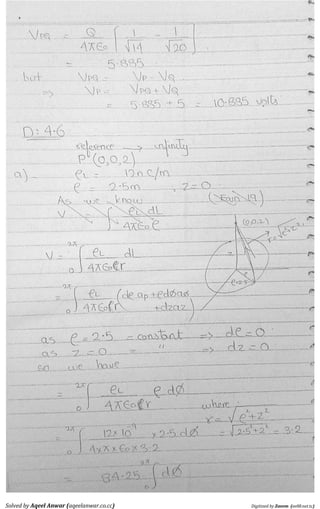 V_PQ = Q / 4πε₀ [ 1/√14 - 1/√20 ]
= 5.885
but V_PQ = V_P - V_Q
=> V_P = V_PQ + V_Q
= 5.885 + 5 = 10.885 volts
D: 4.6
reference → infinity
P(0,0,2)
a) ρL = 12 n C/m
ρ = 2.5m , z=0
As we know
V = ∫ ρL dL / 4πε₀ρ
(0,0,2)
V = ₀∫²π ρL / 4πε₀r dL
= ₀∫²π ρL / 4πε₀r (dρ aρ + ρdø aø
+ dz az)
as ρ = 2.5 = constant => dρ = 0
as z = 0 = " => dz = 0
so we have
= ₀∫²π ρL / 4πε₀r ρ dø
where
r = √ρ²+z²
= ₀∫²π 12×10⁻⁹ / 4×π×ε₀×3.2 × 2.5 dø
= √2.5²+2² = 3.2
= 84.25 ₀∫²π dø
Solved by Aqeel Anwar (aqeelanwar.co.cc)
Digitized by Zaeem (im90.out.tc)